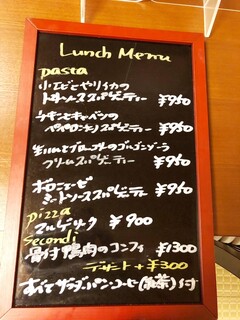 Lunch Menu
pasta
小エビとやりイカの
トマトソーススパゲッティー ¥950
シチキンとキャベツの
ペペロンチーノスパゲッティー ¥950
生ハムとブロッコリーのゴルゴンゾーラ
クリームスパゲッティー ¥950
ボロニェーゼ
ミートソーススパゲッティー ¥950
pizza
マルゲリータ ¥900
secondi
骨付鴨肉のコンフィ ¥1300
デザート+¥300
すべてサラダ・パン・コーヒー(紅茶)付